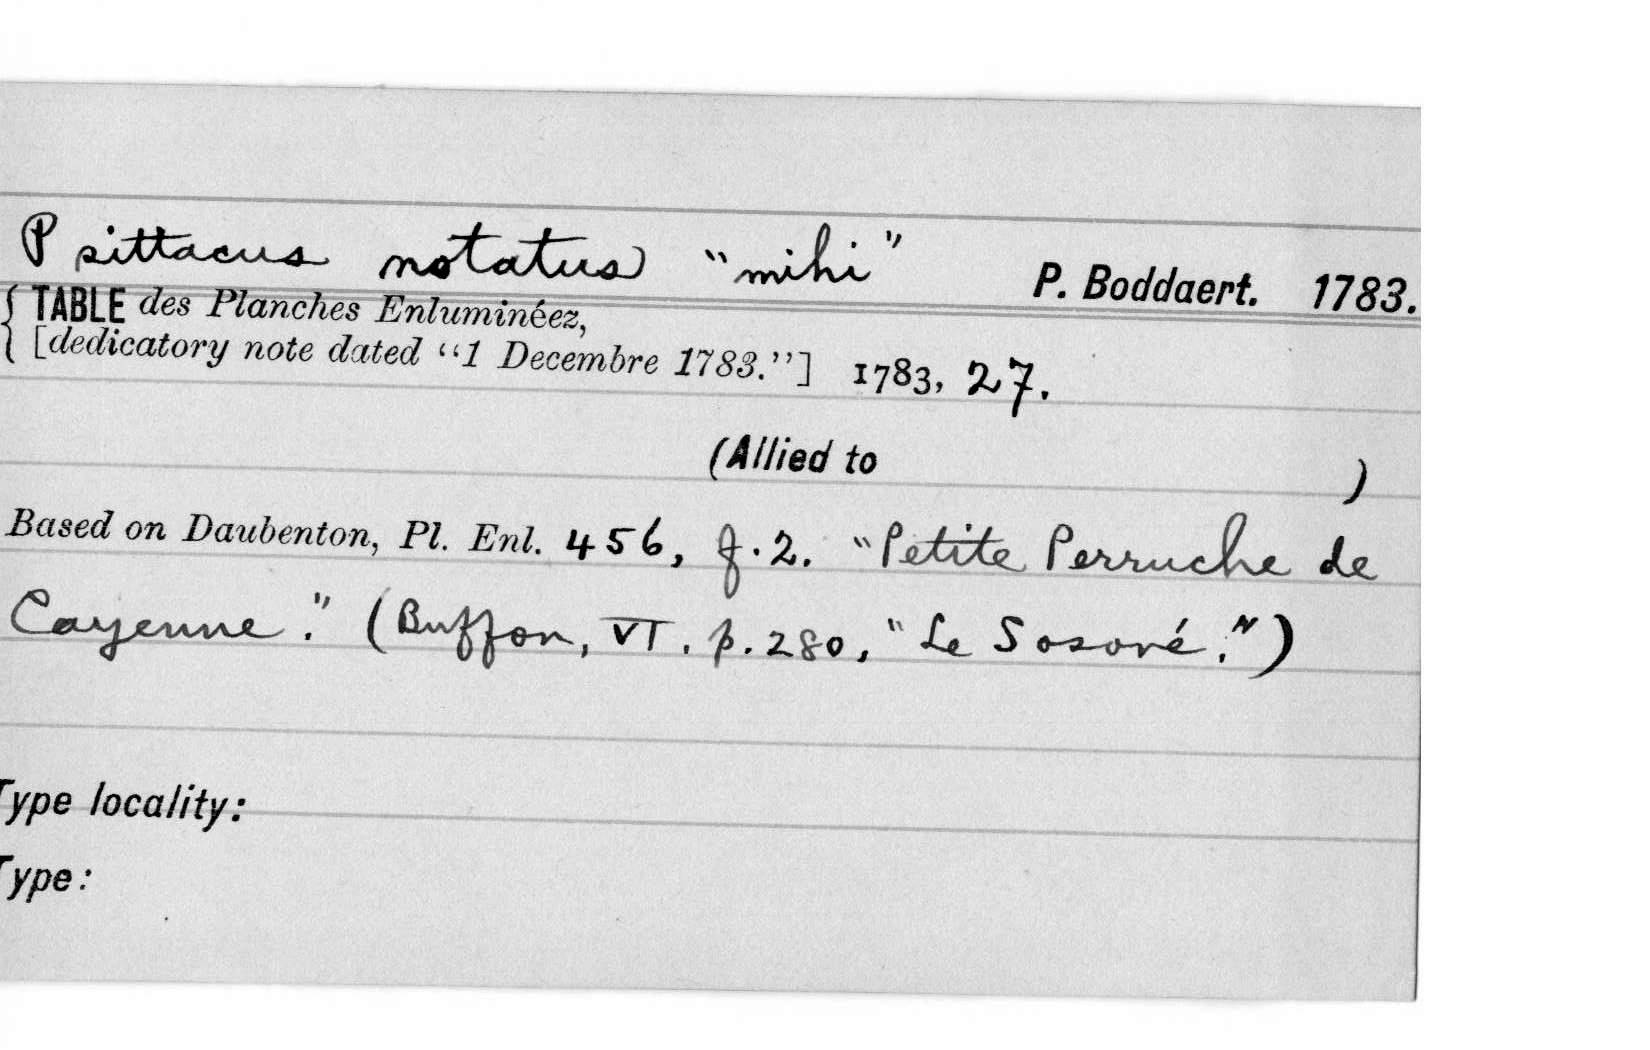 Psittacus notatus "mihi" P. Boddaert. 1783.
{ TABLE des Planches Enluminéez,
[dedicatory note dated "1 Decembre 1783."] 1783, 27.
(Allied to )
Based on Daubenton, Pl. Enl. 456, f.2. "Petite Perruche de
Cayenne." (Buffon, VI. p.280, "Le Sosové.")
Type locality:
Type: